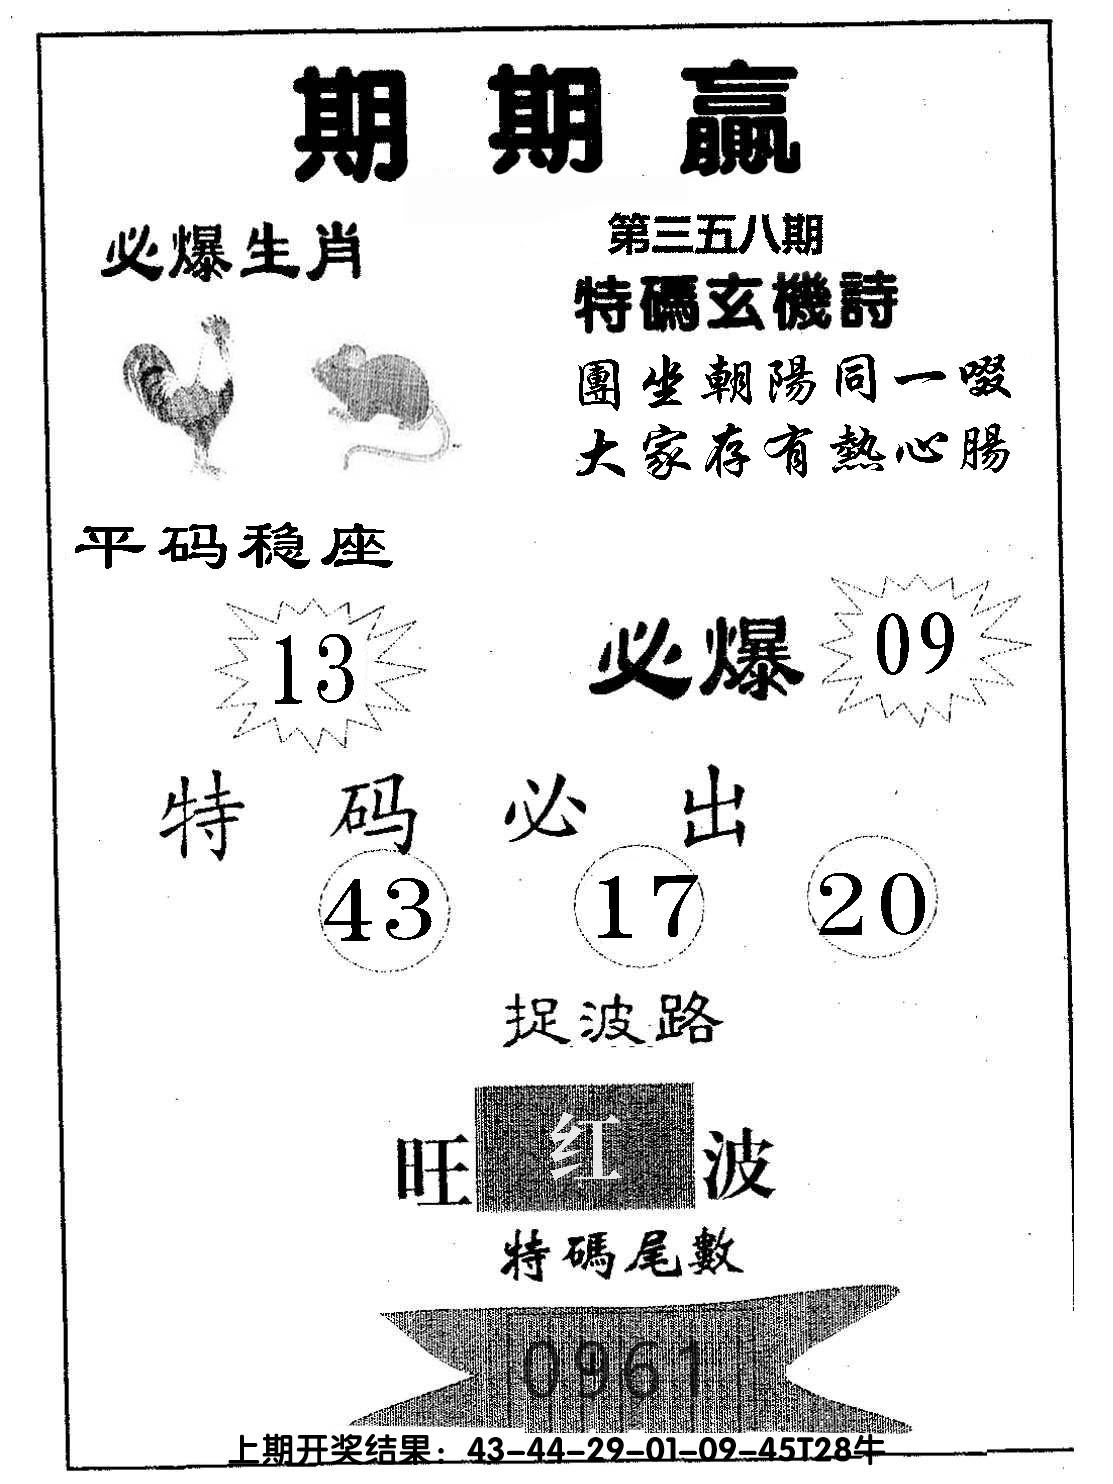 期期赢
必爆生肖
第三五八期
特碼玄機詩
團坐朝陽同一啜
大家存有熱心腸
平码稳座
13
必爆
09
特码必出
43 17 20
捉波路
旺红波
特碼尾數
0961
上期开奖结果：43-44-29-01-09-45T28牛